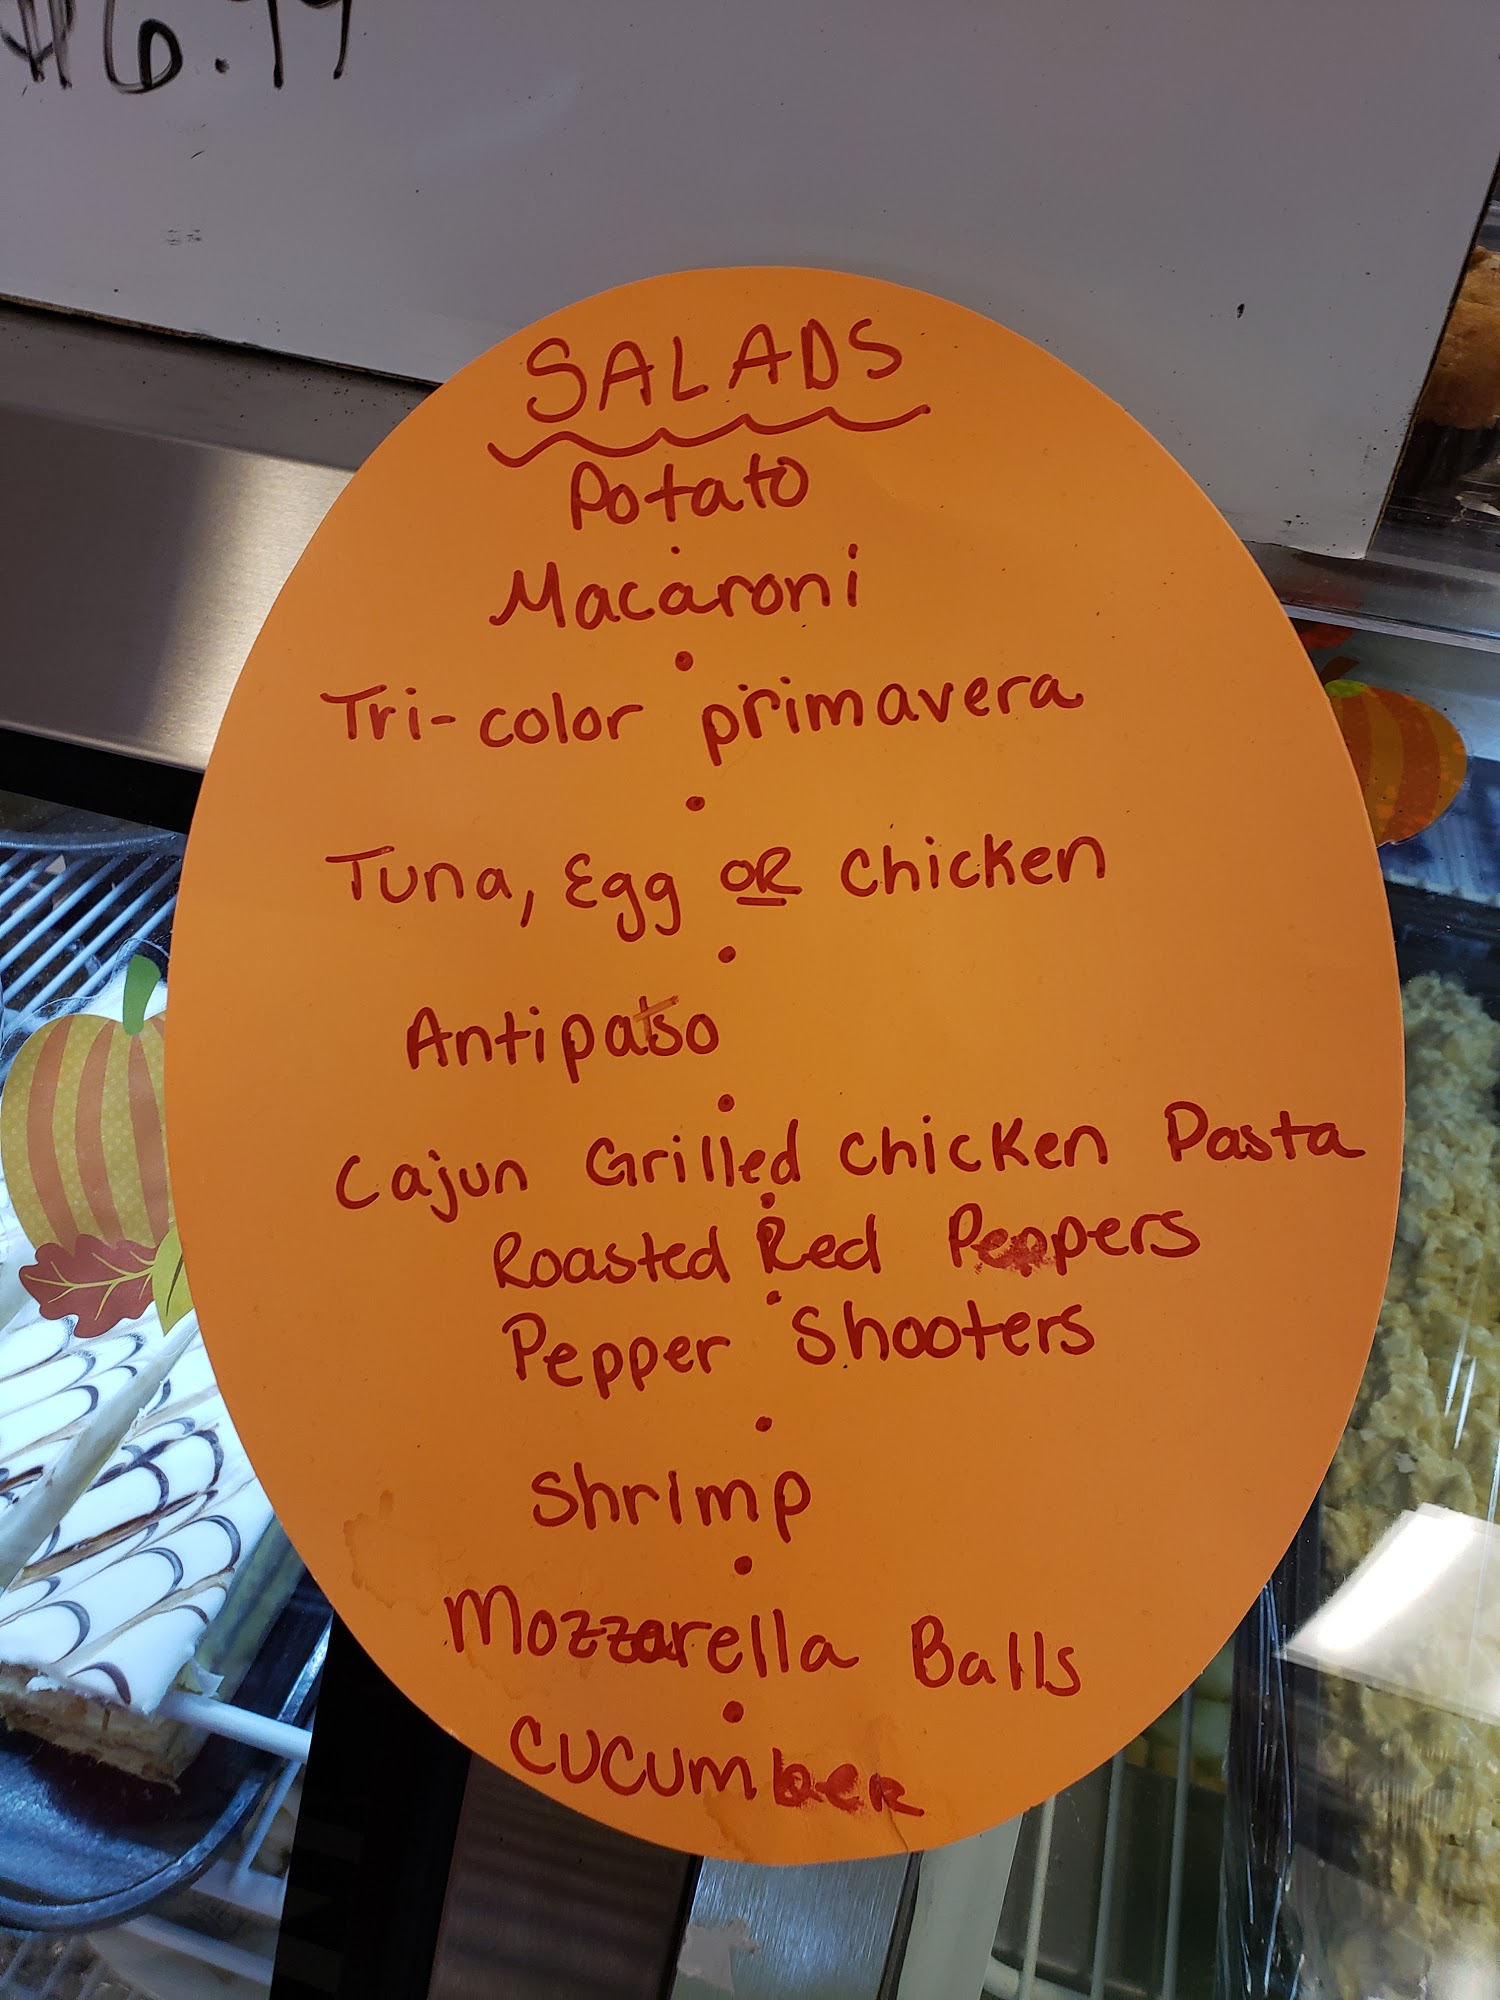 $6.99
SALADS
Potato
Macaroni
Tri-color primavera
Tuna, Egg OR Chicken
Antipasto
Cajun Grilled Chicken Pasta
Roasted Red Peppers
Pepper Shooters
Shrimp
Mozzarella Balls
CUCUmber